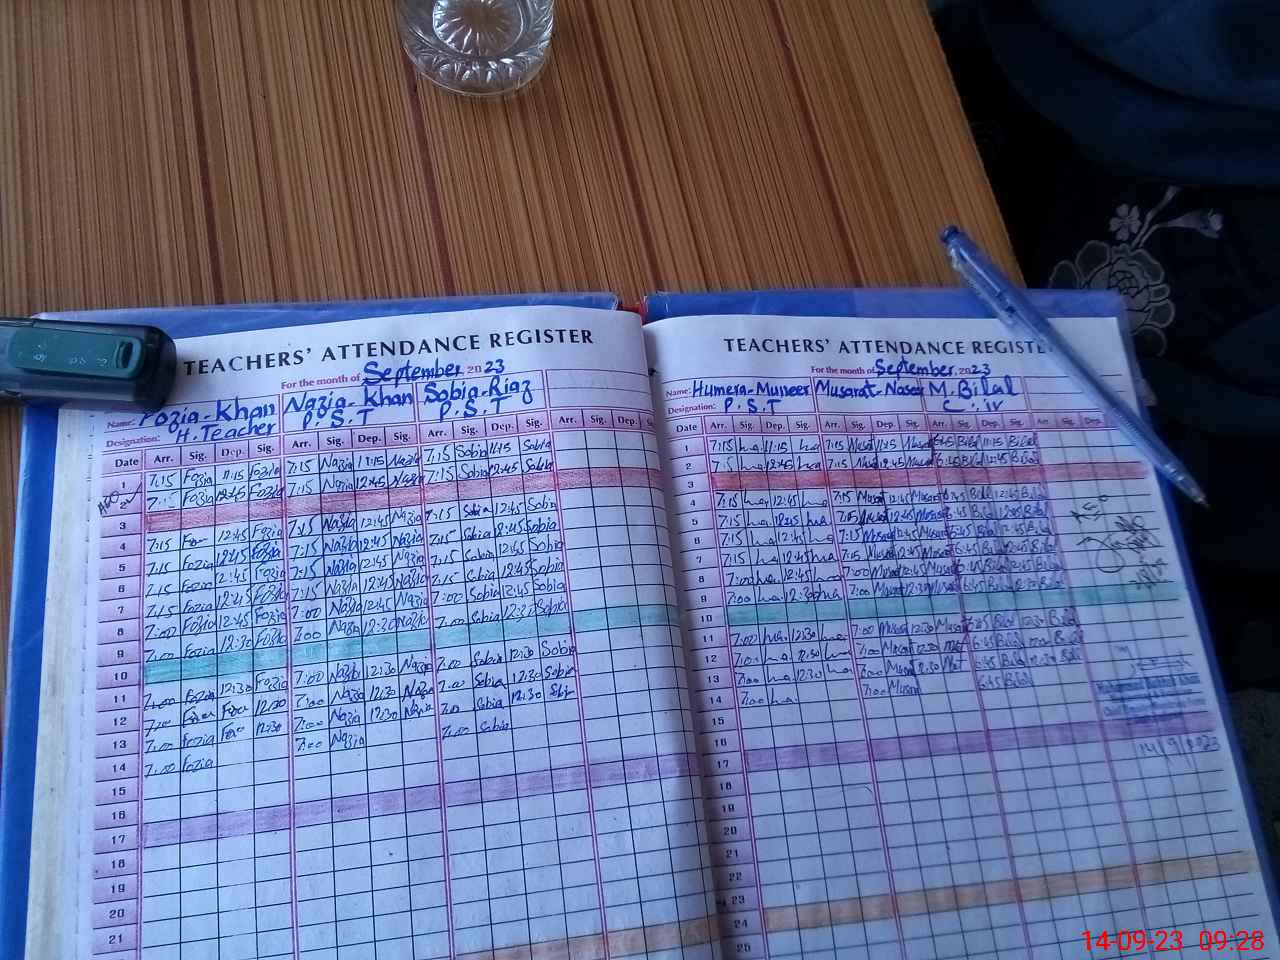 TEACHERS' ATTENDANCE REGISTER
For the month of September 2023
Name: Fozia-Khan Nazia-khan Sobia-Riaz
Designation: H.Teacher P.S.T P.S.T
Date Arr. Sig. Dep. Sig. Arr. Sig. Dep. Sig. Arr. Sig. Dep. Sig. Arr. Sig. Dep. Sig.
1 7:15 Fozia 11:15 Fozia 7:15 Nazia 11:15 Nazia 7:15 Sobia 11:15 Sobia
2 Fozia 12:45 Fozia 7:15 Nazia 12:45 Nazia 7:15 Sobia 12:45 Sobia
3
4 7:15 12:45 Fozia 7:15 Nazia 12:45 Nazia 7:15 Sobia 12:45 Sobia
5 7:15 Fozia 12:45 Fozia 7:15 Nazia 12:45 Nazia 7:15 Sobia 12:45 Sobia
6 7:15 Fozia 12:45 Fozia 7:15 Nazia 12:45 Nazia 7:15 Sobia 12:45 Sobia
7 7:15 Fozia 12:45 Fozia 7:15 Nazia 12:45 Nazia 7:15 Sobia 12:45 Sobia
8 7:00 Fozia 12:45 Fozia 7:00 Nazia 12:45 Nazia 7:00 Sobia 12:45 Sobia
9 7:00 Fozia 12:30 Fozia 7:00 Nazia 12:30 Nazia 7:00 Sobia 12:30 Sobia
10
11 7:00 Fozia 12:30 Fozia 7:00 Nazia 12:30 Nazia 7:00 Sobia 12:30 Sobia
12 7:00 12:30 7:00 Nazia 12:30 Nazia 7:00 Sobia 12:30 Sobia
13 7:00 Fozia 12:30 7:00 Nazia 12:30 7:00 Sobia 12:30
14 7:00 Fozia 7:00 Nazia 7:00 Sobia
15
16
17
18
19
20
21
TEACHERS' ATTENDANCE REGISTE
For the month of September, 2023
Name: Humera-Muneer Musarat-Naser M.Bilal
Designation: P.S.T C.iv
Date Arr. Sig. Dep. Sig. Arr. Sig. Dep. Sig. Arr. Sig. Dep. Sig. Arr. Sig. Dep.
1 7:15 ha 11:15 ha 7:15 Musat 11:15 Musat 6:45 Bilal 11:15 Bilal
2 7:15 ha 12:45 ha 7:15 Musat 12:45 Musat 6:45 Bilal 12:45 Bilal
3
4 7:15 ha 12:45 ha 7:15 Musat 12:45 Musat 6:45 Bilal 12:45 Bilal
5 7:15 ha 12:45 ha 7:15 Musat 12:45 Musat 6:45 Bilal 12:45 Bilal
6 7:15 ha 12:45 ha 7:15 Musat 12:45 Musat 6:45 Bilal 12:45 Bilal
7 7:15 ha 12:45 ha 7:15 Musat 12:45 Musat 6:45 Bilal 12:45 Bilal
8 7:00 ha 12:45 ha 7:00 Musat 12:45 Musat 6:45 Bilal 12:45 Bilal
9 7:00 ha 12:30 ha 7:00 Musat 12:30 Musat 6:45 Bilal 12:30 Bilal
10
11 7:00 ha 12:30 ha 7:00 Musat 12:30 Musat 6:45 Bilal 12:30 Bilal
12 7:00 ha 12:30 ha 7:00 Musat 12:30 6:45 Bilal Bilal
13 7:00 ha 12:30 ha 7:00 Musat 12:30 6:45 Bilal Bilal
14 7:00 ha 7:00 Musat 6:45 Bilal
15
16
17
18
19
20
21
22
23
24
25
14/9/2023
14-09-23 09:28